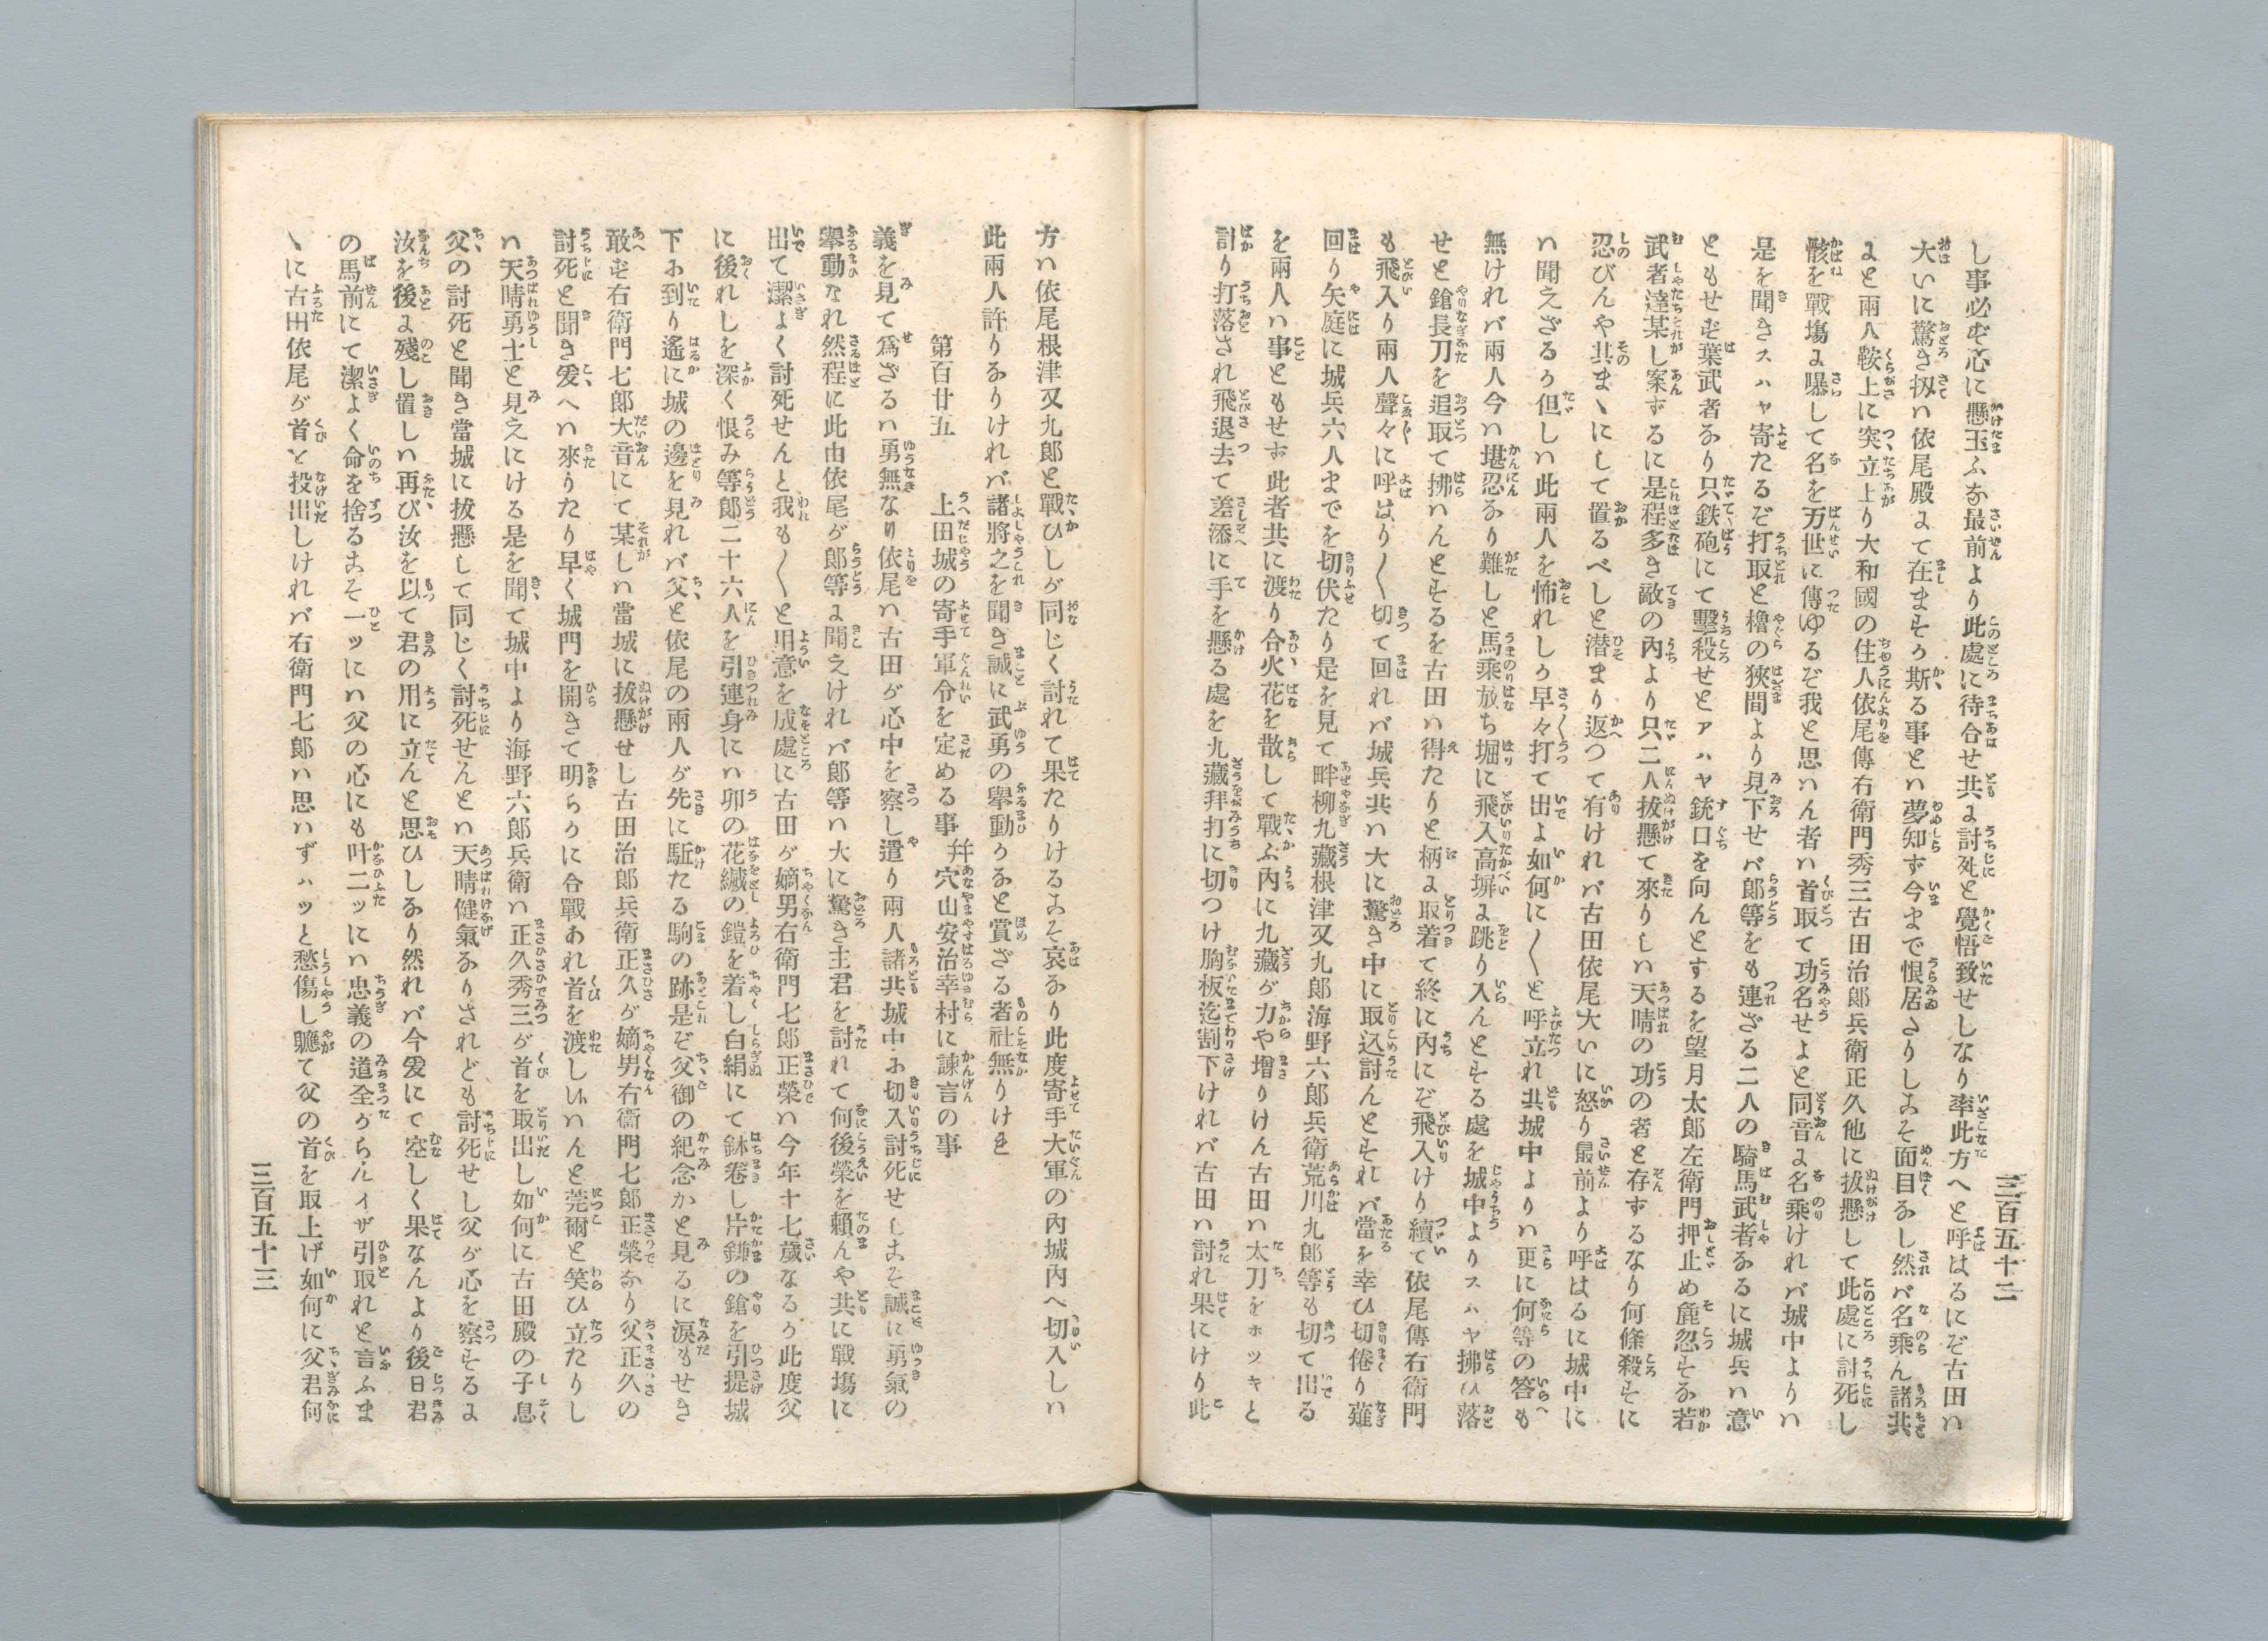 三百五十二
し事必ず心に懸玉ふな最前より此處に待合せ共に討死と覺悟致せしなり率此方へと呼はるにぞ古田ハ
大いに驚き扨ハ依尾殿にて在ますか斯る事とハ夢知ず今まで恨居さりしこそ面目なし然バ名乘ん諸共
にと兩人鞍上に突立上り大和國の住人依尾傳右衛門秀三古田治郎兵衛正久他に拔懸して此處に討死し
骸を戰塲に曝して名を万世に傳ゆるぞ我と思ハん者ハ首取て功名せよと同音に名乘けれバ城中よりハ
是を聞きスハヤ寄たるぞ打取と櫓の狹間より見下せバ郎等をも連ざる二人の騎馬武者なるに城兵ハ意
ともせず葉武者なり只鉄砲にて擊殺せとアハヤ銃口を向んとするを望月太郎左衛門押止め麁忽するな若
武者達某し案ずるに是程多き敵の內より只二人拔懸て來りしハ天晴の功の者と存ずるなり何條殺すに
忍びんや其まゝにして置るべしと潜まり返つて有けれバ古田依尾大いに怒り最前より呼はるに城中に
ハ聞えざるか但しハ此兩人を怖れしか早々打て出よ如何に〳〵と呼立れ共城中よりハ更に何等の答も
無けれバ兩人今ハ堪忍なり難しと馬乘放ち堀に飛入高塀に跳り入んとする處を城中よりスハヤ拂ひ落
せと鎗長刀を追取て拂ハんとするを古田ハ得たりと柄に取着て終に內にぞ飛入けり續て依尾傳右衛門
も飛入り兩人聲々に呼はり〳〵切て回れバ城兵共ハ大に驚き中に取込討んとすれバ當るを幸ひ切倦り薙
回り矢庭に城兵六人までを切伏たり是を見て畔柳九藏根津又九郎海野六郎兵衛荒川九郎等も切て出る
を兩人ハ事ともせず此者共に渡り合火花を散して戰ふ內に九藏が力や增りけん古田ハ太刀をホツキと
計り打落され飛退去て差添に手を懸る處を九藏拜打に切つけ胸板迄割下けれバ古田ハ討れ果にけり此
方ハ依尾根津又九郎と戰ひしが同じく討れて果たりけるこそ哀なり此度寄手大軍の內城內へ切入しハ
此兩人許りなりけれバ諸將之を聞き誠に武勇の擧動かなと賞ざる者社無りけれ
第百廿五　上田城の寄手軍令を定める事幷穴山安治幸村に諫言の事
義を見て爲ざるハ勇無なり依尾ハ古田が心中を察し遣り兩人諸共城中に切入討死せしこそ誠に勇氣の
擧動なれ然程に此由依尾が郎等に聞えけれバ郎等ハ大に驚き主君を討れて何後榮を賴んや共に戰塲に
出て潔よく討死せんと我も〳〵と用意を成處に古田が嫡男右衛門七郎正榮ハ今年十七歲なるが此度父
に後れしを深く恨み等郎二十六人を引連身にハ卯の花縅の鎧を着し白絹にて鉢卷し片鎌の鎗を引提城
下に到り遙に城の邊を見れバ父と依尾の兩人が先に駈たる駒の跡是ぞ父御の紀念かと見るに淚もせき
敢ず右衛門七郎大音にて某しハ當城に拔懸せし古田治郎兵衛正久が嫡男右衛門七郎正榮なり父正久の
討死と聞き爰へハ來りたり早く城門を開きて明らかに合戰あれ首を渡し參ハんと莞爾と笑ひ立たりし
ハ天晴勇士と見えにける是を聞て城中より海野六郎兵衛ハ正久秀三が首を取出し如何に古田殿の子息
父の討死と聞き當城に拔懸して同じく討死せんとハ天晴健氣なりされども討死せし父が心を察するに
汝を後に殘し置しハ再び汝を以て君の用に立んと思ひしなり然れバ今爰にて空しく果なんより後日君
の馬前にて潔よく命を捨るこそ一ツにハ父の心にも叶二ツにハ忠義の道全からんイザ引取れと言ふま
ゝに古田依尾が首を投出しけれバ右衛門七郎ハ思ハずハツと愁傷し軈て父の首を取上げ如何に父君何
三百五十三